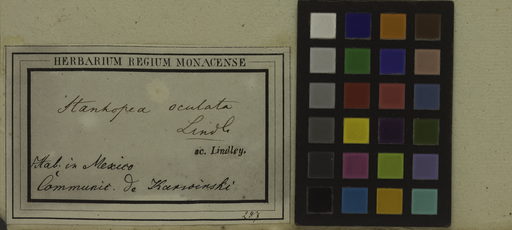 HERBARIUM REGIUM MONACENSE
Stanhopea oculata
Lindl.
sc. Lindley.
Hab. in Mexico
Communic. de Karwinski